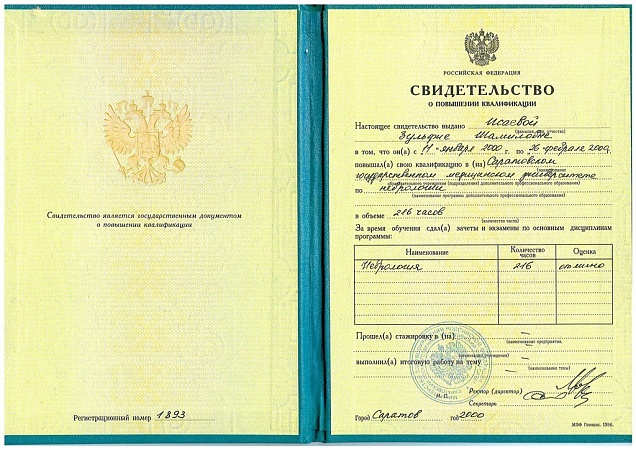 Свидетельство является государственным документом
о повышении квалификации
Регистрационный номер 1893
РОССИЙСКАЯ ФЕДЕРАЦИЯ
СВИДЕТЕЛЬСТВО
О ПОВЫШЕНИИ КВАЛИФИКАЦИИ
Настоящее свидетельство выдано Исаевой
(фамилия, имя, отчество)
Зульфие Шамиловне
в том, что он(а) с 11 января 2000 г. по 26 февраля 2000
повышал(а) свою квалификацию в (на) Саратовском
(наименование
государственном медицинском университете
образовательного учреждения (подразделения) дополнительного профессионального образования)
по неврологии
(наименование программы дополнительного профессионального образования)
в объеме 216 часов
(количество часов)
За время обучения сдал(а) зачеты и экзамены по основным дисциплинам
программы:
Наименование Количество часов Оценка
Неврология 216 отлично
Прошел(а) стажировку в (на) —
(наименование предприятия,
организации, учреждения)
выполнил(а) итоговую работу на тему —
(наименование темы)
Ректор (директор)
М. П. Секретарь
Город Саратов год 2000